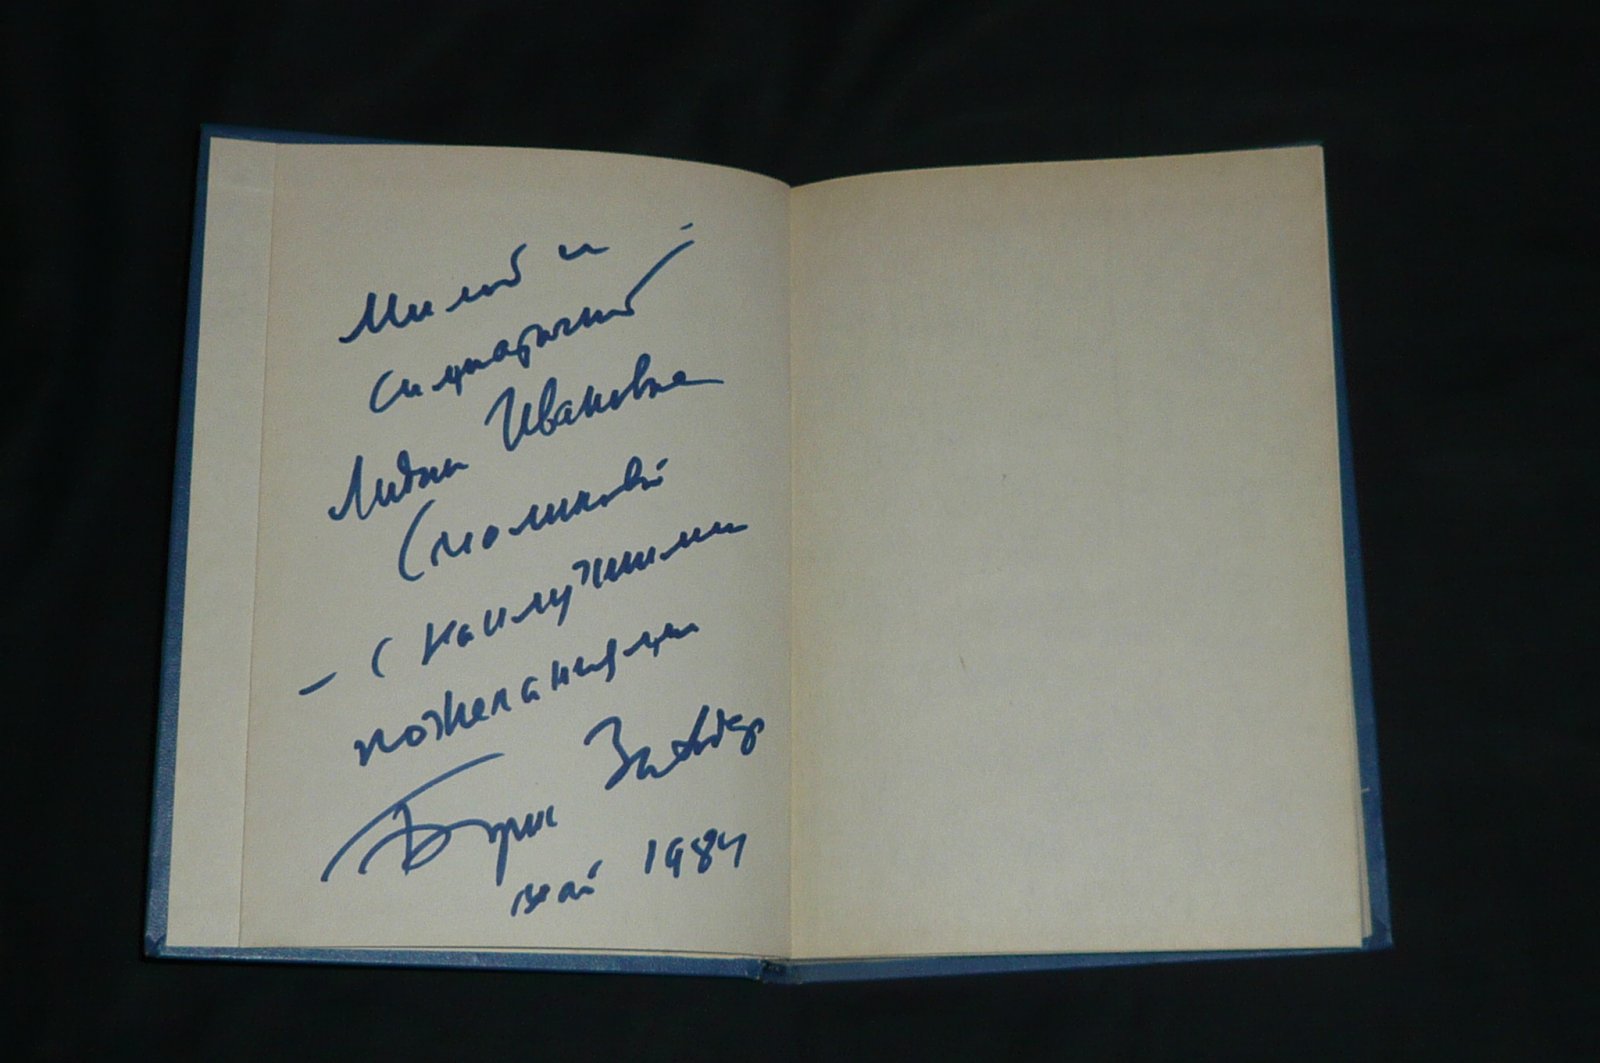 Милой и
симпатичной
Лидии Ивановне
Смолиновой
– с наилучшими
пожеланиями
Борис Заходер
май 1984